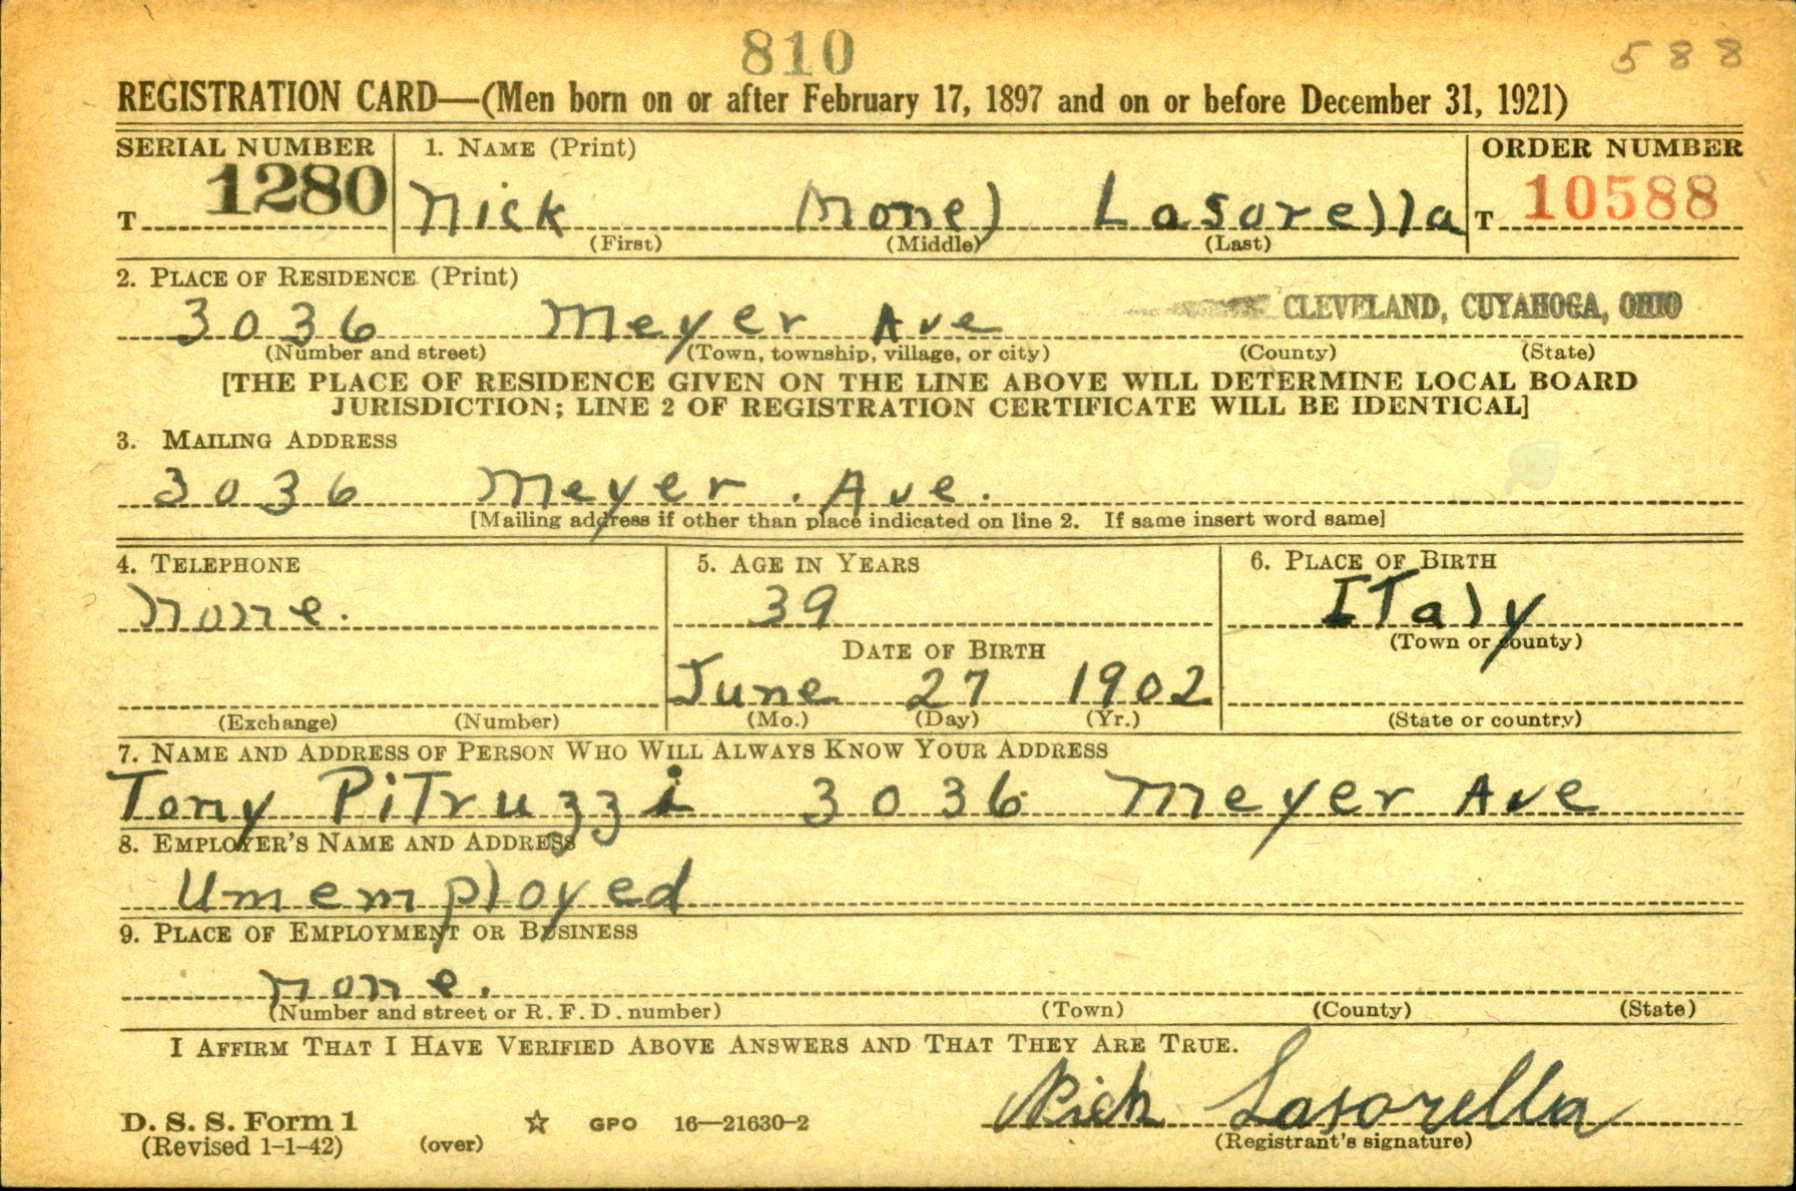 810
588
REGISTRATION CARD—(Men born on or after February 17, 1897 and on or before December 31, 1921)
SERIAL NUMBER
T 1280
1. NAME (Print)
Nick (None) Lasorella
(First) (Middle) (Last)
ORDER NUMBER
T 10588
2. PLACE OF RESIDENCE (Print)
3036 Meyer Ave CLEVELAND, CUYAHOGA, OHIO
(Number and street) (Town, township, village, or city) (County) (State)
[THE PLACE OF RESIDENCE GIVEN ON THE LINE ABOVE WILL DETERMINE LOCAL BOARD
JURISDICTION; LINE 2 OF REGISTRATION CERTIFICATE WILL BE IDENTICAL]
3. MAILING ADDRESS
3036 Meyer. Ave.
[Mailing address if other than place indicated on line 2. If same insert word same]
4. TELEPHONE
none.
(Exchange) (Number)
5. AGE IN YEARS
39
DATE OF BIRTH
June 27 1902
(Mo.) (Day) (Yr.)
6. PLACE OF BIRTH
ITaly
(Town or county)
(State or country)
7. NAME AND ADDRESS OF PERSON WHO WILL ALWAYS KNOW YOUR ADDRESS
Tony PiTruzzi 3036 Meyer Ave
8. EMPLOYER'S NAME AND ADDRESS
Umemployed
9. PLACE OF EMPLOYMENT OR BUSINESS
none.
(Number and street or R. F. D. number) (Town) (County) (State)
I AFFIRM THAT I HAVE VERIFIED ABOVE ANSWERS AND THAT THEY ARE TRUE.
Nick Lasorella
(Registrant's signature)
D. S. S. Form 1
(Revised 1-1-42) (over) ☆ GPO 16—21630-2